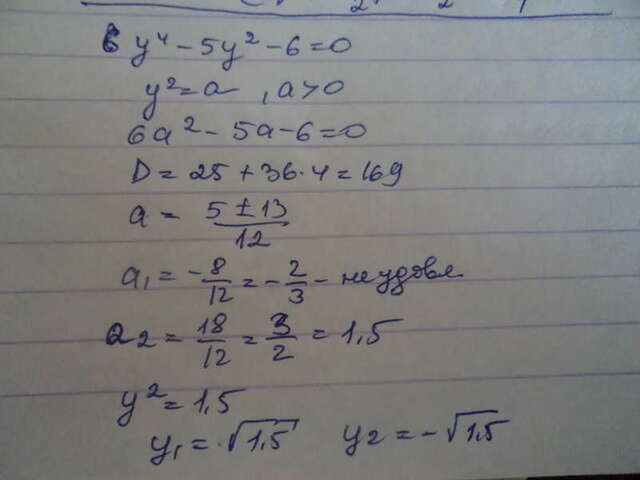 6y⁴ - 5y² - 6 = 0
y² = a , a > 0
6a² - 5a - 6 = 0
D = 25 + 36·4 = 169
a = (5 ± 13)/12
a₁ = -8/12 = -2/3 - неудовл.
a₂ = 18/12 = 3/2 = 1,5
y² = 1,5
y₁ = √1,5 y₂ = -√1,5